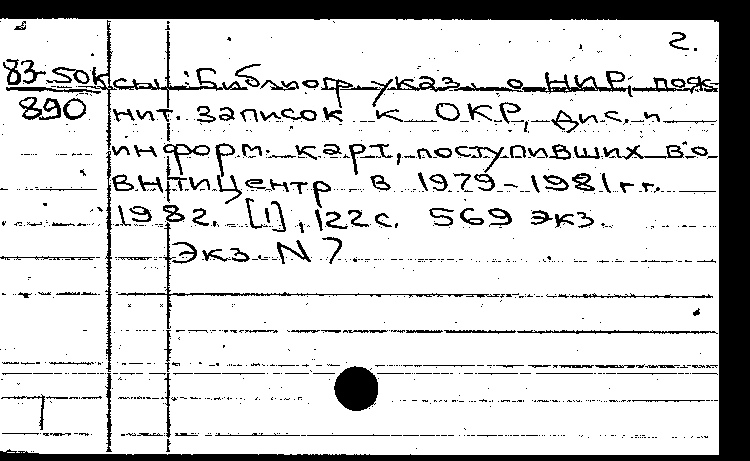 2.
83-50к сы: Библиогр. указ. о НИР, пояс-
890 нит. записок к ОКР, дис. и
информ. карт, поступивших во
ВНТИЦентр в 1979-1981 гг.
1982. [1], 122 с. 569 экз.
Экз. N 7